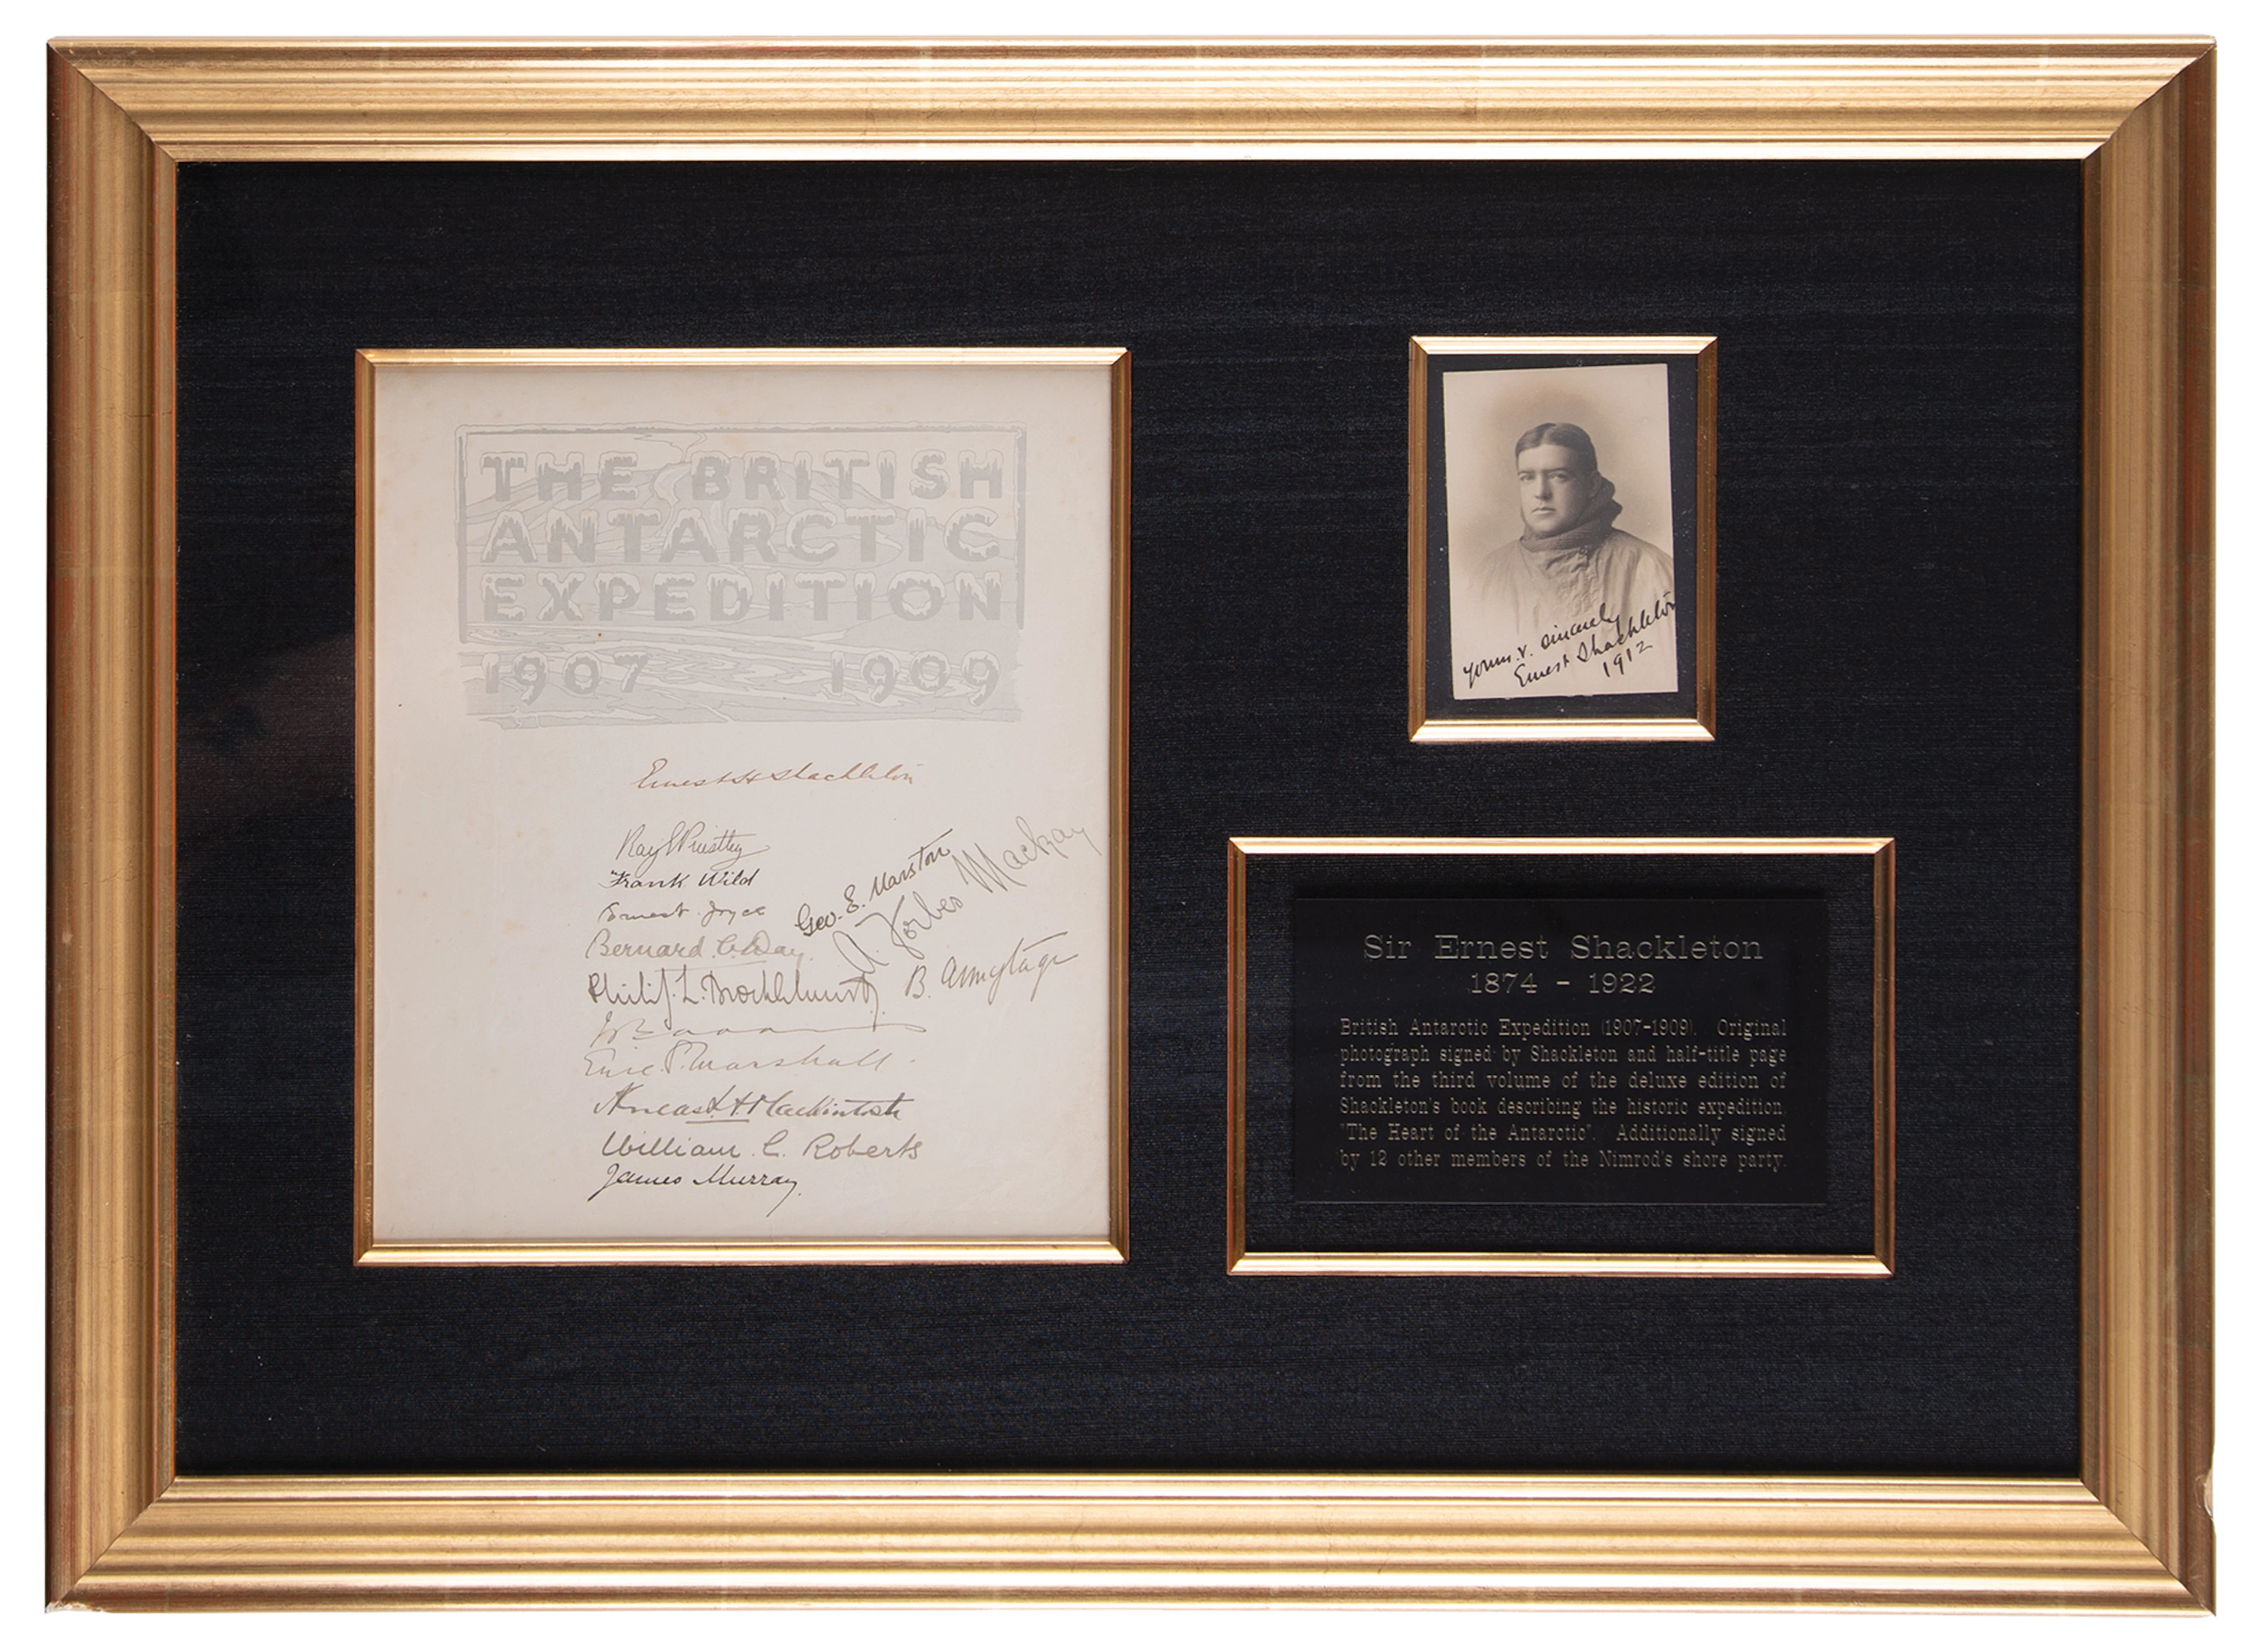 THE BRITISH
ANTARCTIC
EXPEDITION
1907 1909
Ernest H Shackleton
Raymond Priestley
Frank Wild
Ernest Joyce
Bernard C. Day.
Philip L. Brocklehurst
Eric S. Marshall
Aeneas L. A. Mackintosh
William C. Roberts
James Murray
Geo. E. Marston
A. Forbes Mackay
B. Armytage
yours v. sincerely
Ernest Shackleton
1912
Sir Ernest Shackleton
1874 - 1922
British Antarctic Expedition (1907-1909). Original
photograph signed by Shackleton and half-title page
from the third volume of the deluxe edition of
Shackleton's book describing the historic expedition
"The Heart of the Antarctic". Additionally signed
by 12 other members of the Nimrod's shore party.